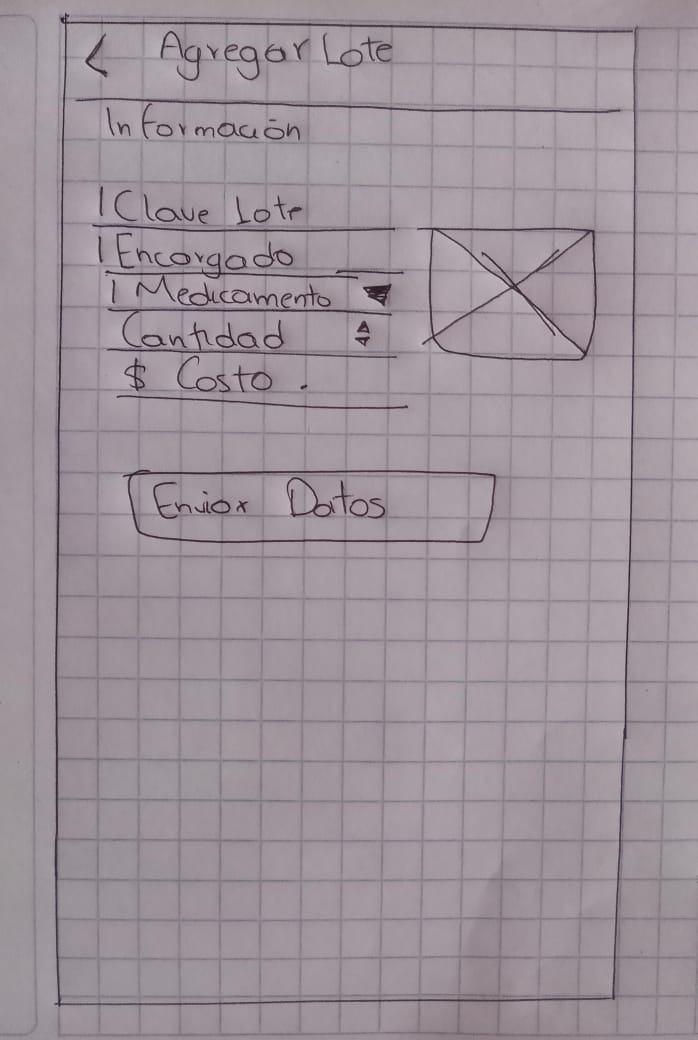 < Agregar Lote
Información
| Clave Lote
| Encargado
| Medicamento
Cantidad
$ Costo .
Enviar Datos